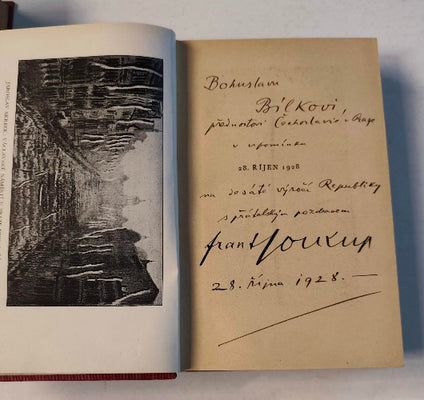 Bohuslavu
Bílkovi,
přednostovi Čechoslavie v Praze
v upomínku
28. ŘÍJEN 1928
na desáté výročí Republiky
s přátelským pozdravem
Frant Soukup
28. října 1928. —
VÁCLAVSKÉ NÁMĚSTÍ